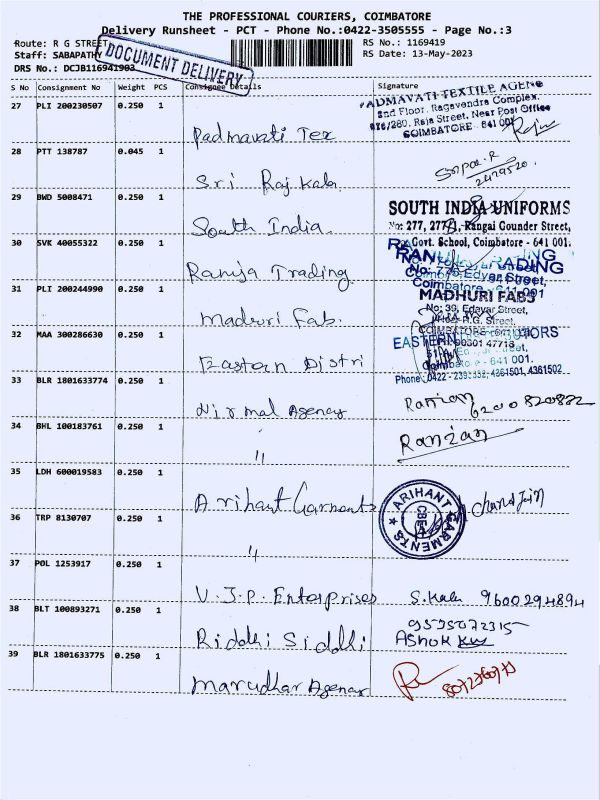 THE PROFESSIONAL COURIERS, COIMBATORE
Delivery Runsheet - PCT - Phone No.:0422-3505555 - Page No.:3
Route: R G STREET
RS No.: 1169419
Staff: SABAPATHY
RS Date: 13-May-2023
DRS No.: DCJB116941903
DOCUMENT DELIVERY
S No Consignment No Weight PCS Consignee Details Signature
27 PLI 200230507 0.250 1
Padmavati Tex
PADMAVATI TEXTILE AGENC
2nd Floor, Ragavendra Complex,
Raja Street, Near Post Office
COIMBATORE - 641 001
28 PTT 138787 0.045 1
Sri Raj Kala
2479520
29 BWD 5008471 0.250 1
South India
SOUTH INDIA UNIFORMS
No: 277, 277A, Rangai Gounder Street,
Govt. School, Coimbatore - 641 001.
30 SVK 40055322 0.250 1
Ramja Trading
TRADING
31 PLI 200244990 0.250 1
Madhuri Fab.
MADHURI FABS
No: 39, Edayar Street,
32 MAA 300286630 0.250 1
Eastern Distri
EASTERN
641 001.
33 BLR 1801633774 0.250 1
Nirmal Agency
Ramzan
6200820882
34 BHL 100183761 0.250 1
"
Ramzan
35 LDH 600019583 0.250 1
Arihant Garments
ARIHANT GARMENTS
CBE-1
36 TRP 8130707 0.250 1
"
37 POL 1253917 0.250 1
V.J.P. Enterprises
S. Kala 9600294894
38 BLT 100893271 0.250 1
Riddhi Siddhi
9535072315
ASHOK
39 BLR 1801633775 0.250 1
Marudhar Agency